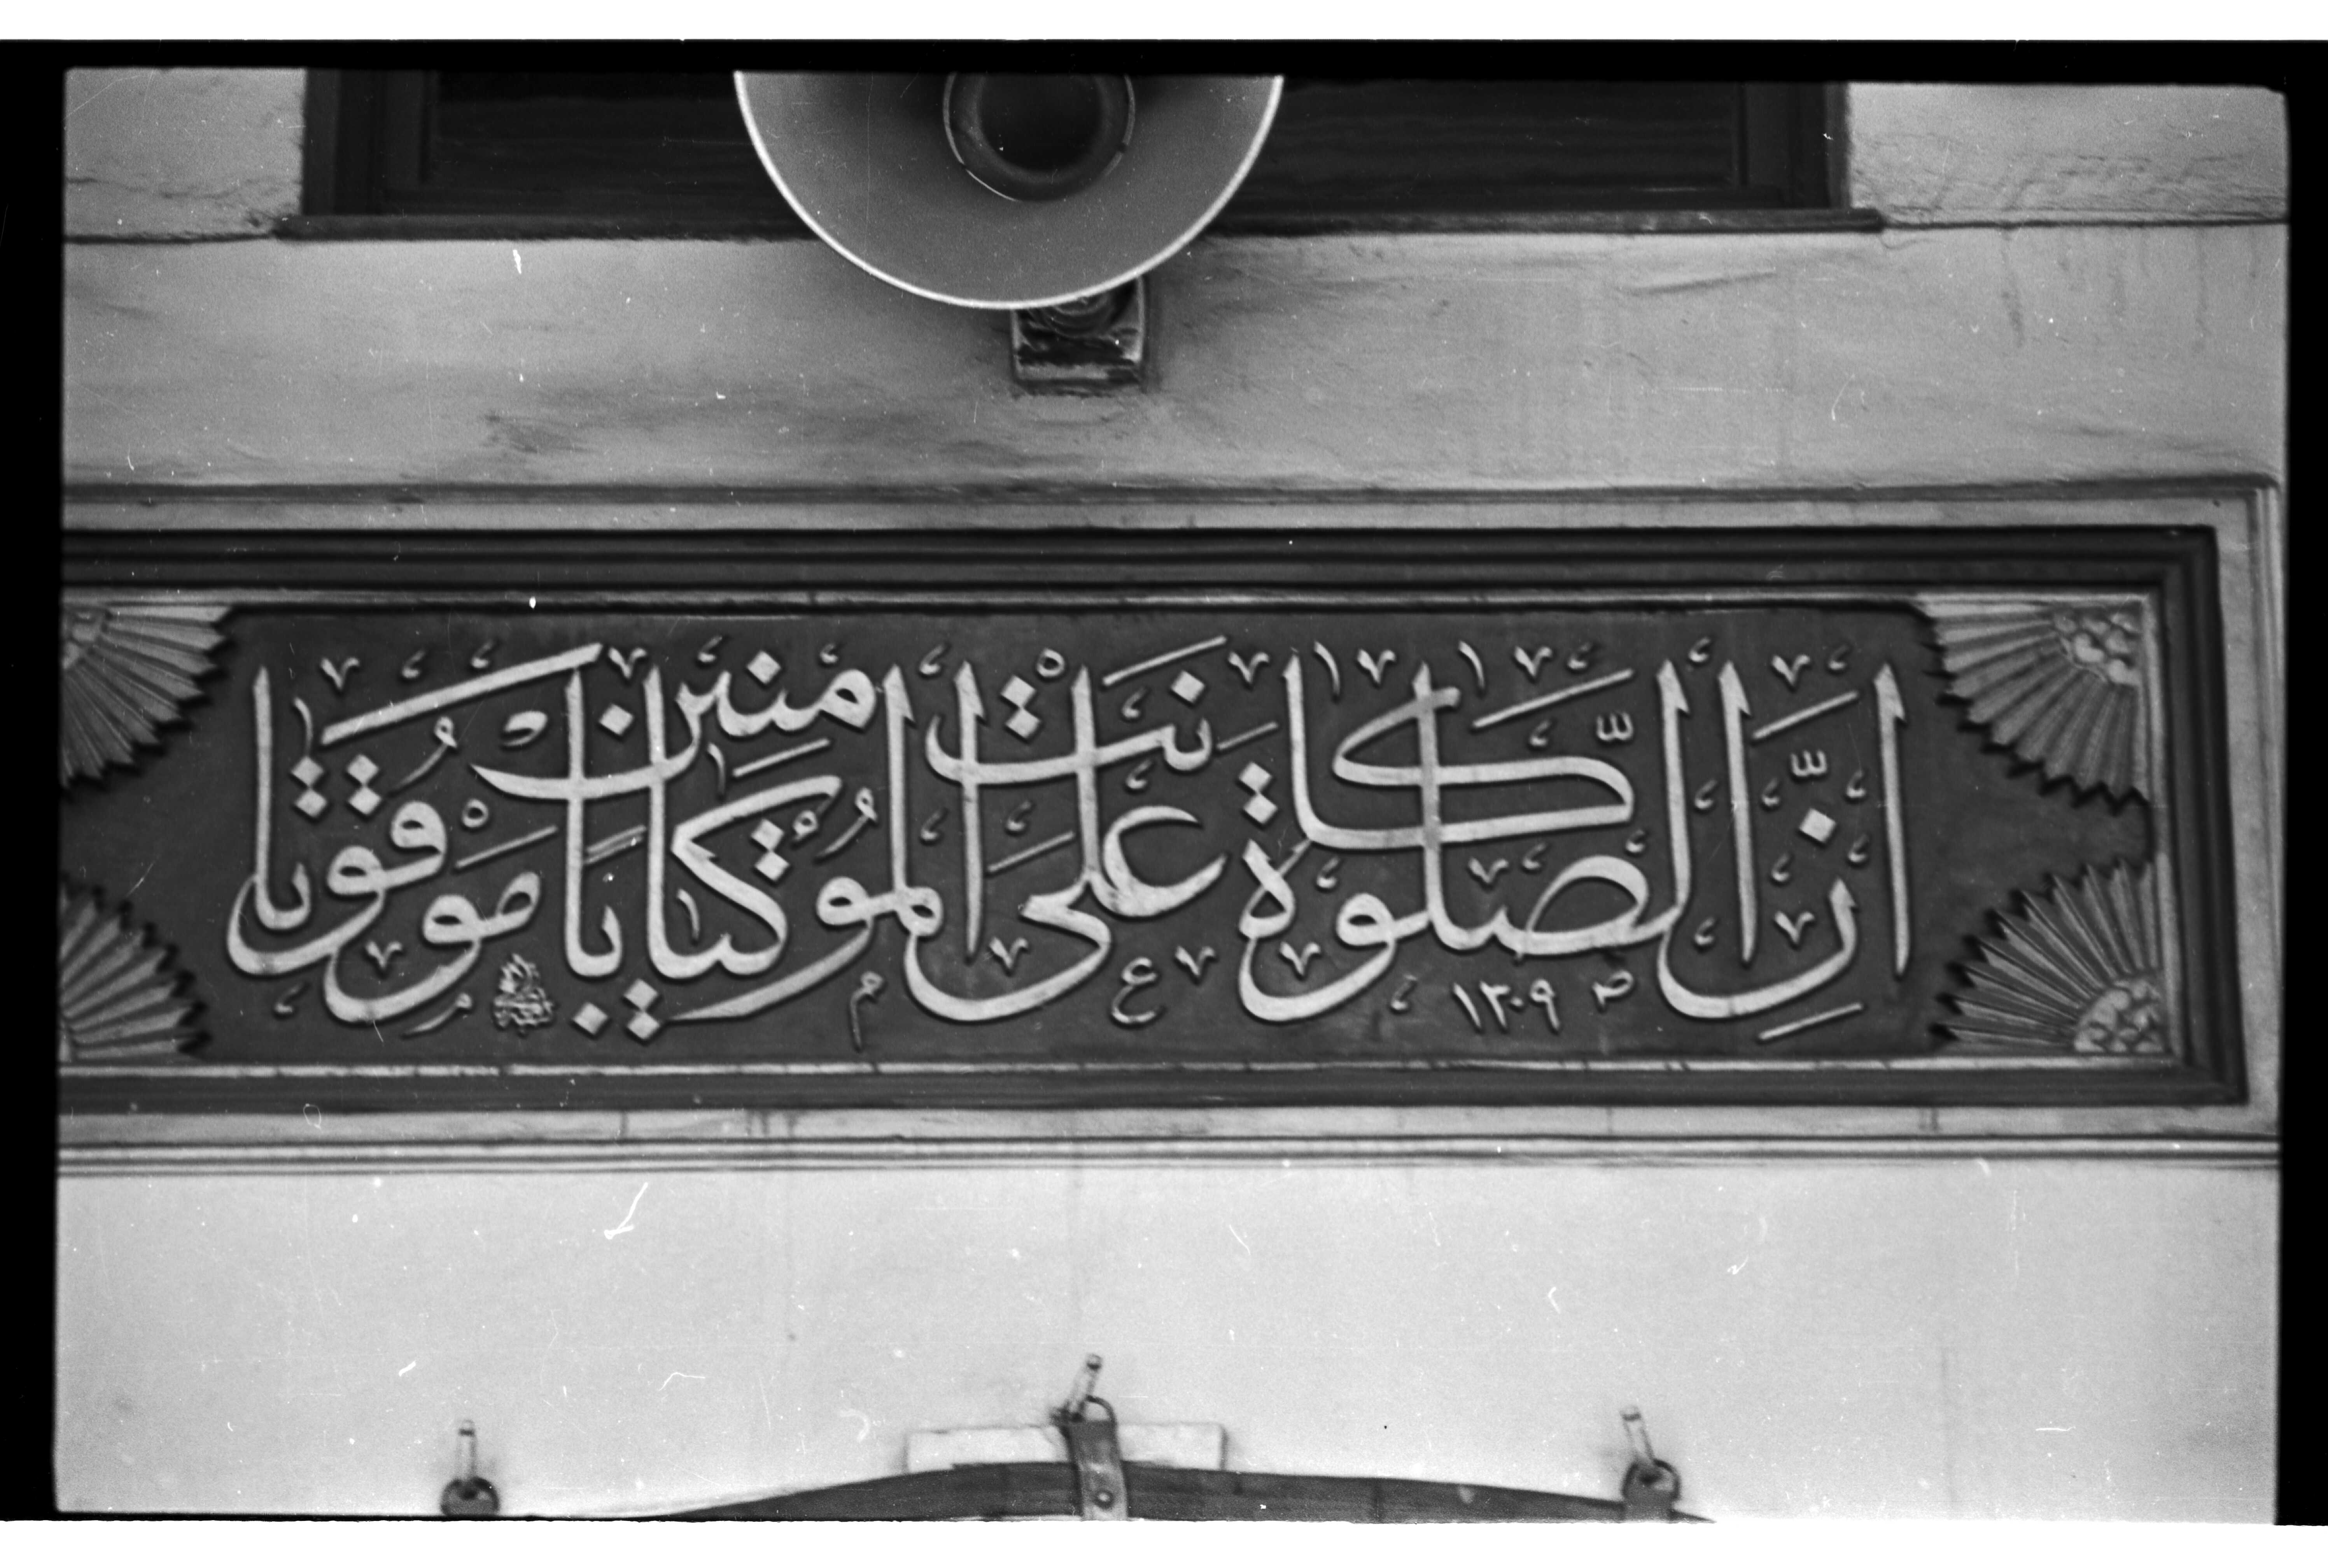 اِنَّ الصَّلٰوةَ كَانَتْ عَلَى الْمُؤْمِنِينَ كِتَابًا مَوْقُوتًا
١٣٠٩